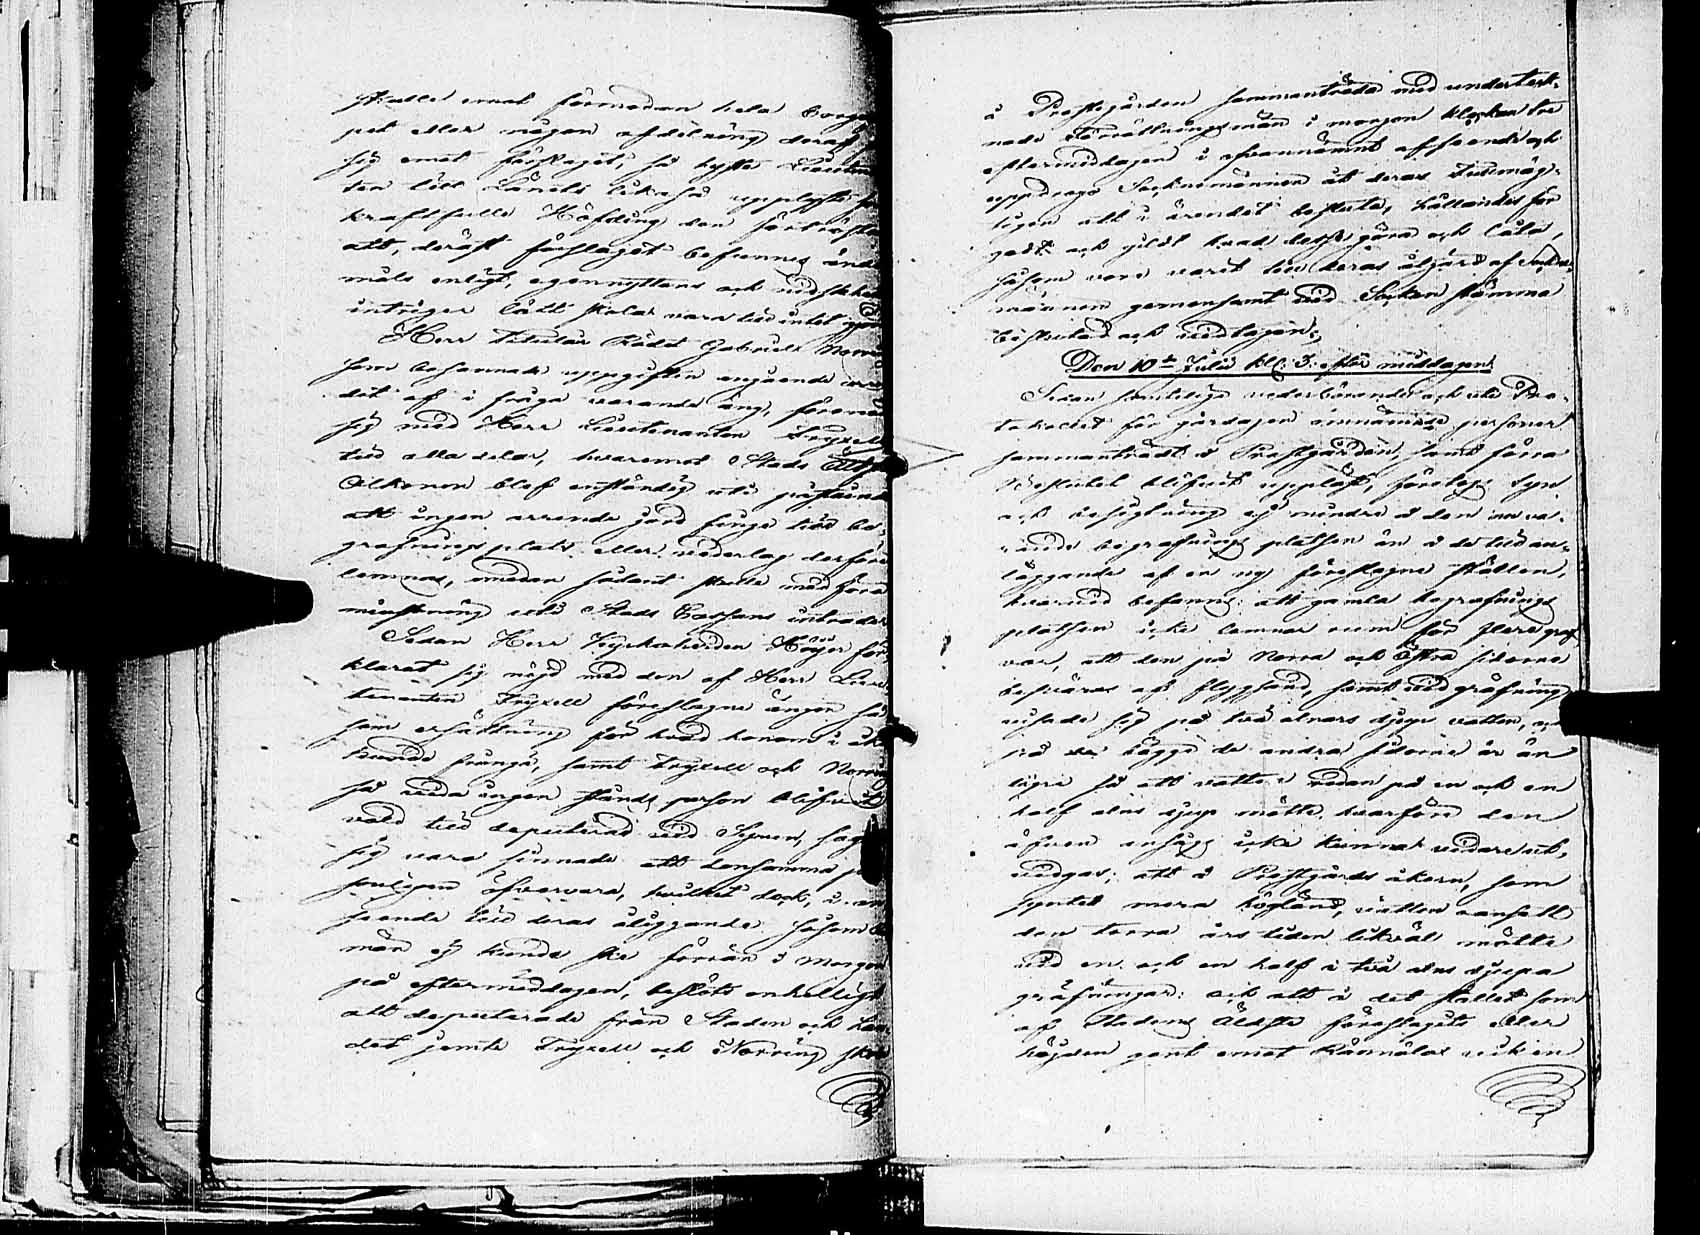 skulle emot förmodan hela Borger
pet eller någon afdelning deraf
sig emot förslaget, så hyste Lieutn
ten till Länets likaså upplyste
kraftfulle Höfding den förtröstan
att, deräst förslaget befunnes ända
måls enligt, egennyttans och
intriger lätt skola vara till intet
Herr Titulär Rådet Gabriels
som besannade uppgiften angående
det af i fråga varande äng, förena
sig med Herr Lieutenanten Fryxell
till alla delar, hvaremot Stads
Alkonen blef enständig uti påstående
att ingen arrende jord finge till be-
grafnings plats eller vederlag derföre
lemnas, emedan sådant skulle medföra
minskning uti Stads Cassans inkomster
Sedan Herr Kyrkoherden Höijer för
klarat sig nöjd med den af Herr Lieu
tenanten Fryxell föreslagne ängen så
som ersättning för hvad honom i åker
kunde frångå, samt Fryxell och Norring
så vida ingen stånds person blifvit
vald till deputerad vid Synen, sagt
sig vara sinnade att densamma per
sonligen öfvervara, hvilket dock, i an
seende till deras åliggande såsom
män ej kunde ske förrän i morgon
på eftermiddagen, beslöts enhälligt
att deputerade från Staden och Lan
det jemte Fryxell och Norring skola
å Prestgården sammanträda med underteck-
nade Förrättningsmän i morgon klockan tre
eftermiddagen i ofvannämnt afseende och
uppdrogo Socknemännen åt deras Fullmäg-
tigen att i ärendet besluta, hållandes för
godt och gildt hvad desse göra och låta,
såsom vore varit till deras åtgärd af Socken-
männen gemensamt vid Sockenstämma
beslutad och vidtagen.
Den 10de Julii kl: 3. efter middagen
Sedan samtelige vederbörande och uti Pro-
tocollet för gårdagen omnämnde personer
sammanträdt å Prestgården, samt förra
Beslutet blifvit uppläst, företogs syn
och besigtning ej mindre å den nu va-
rande begrafnings platsen än å de till an-
läggande af en ny föreslagne ställen,
hvarvid befanns: att gamla begrafnings
platsen icke lemnar rum för flere graf-
var, att den på Norra och Östra sidorne
besväras af flygsand, samt vid gräfning
visade sig på två alnars djup vatten, och
på bägge de andra sidorne är än
lägre så att vattnet redan på en och en
half alns djup mötte, hvarföre den
äfven ansågs icke kunna vidare ut-
vidgas; att å Prestgårds åkern, som
syntes mera högländ, vatten oansett
den torra årstiden likväl mötte
vid en och en half à två alns djupa
gräfningar: och att å det stället som
af Stadens Äldste föreslagits eller
höjden gent emot viken